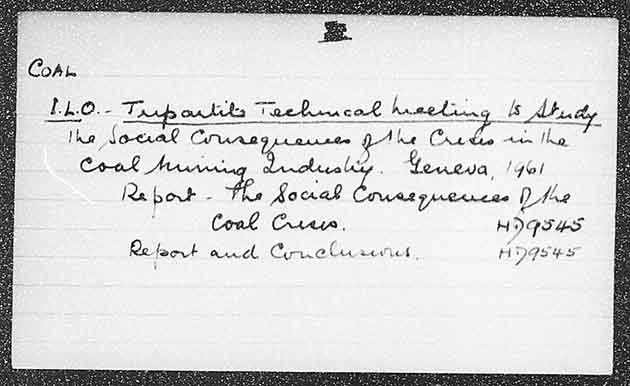 COAL
I.L.O. - Tripartite Technical Meeting to Study
the Social Consequences of the Crisis in the
Coal Mining Industry. Geneva, 1961
Report - The Social Consequences of the
Coal Crisis. HD9545
Report and Conclusions. HD9545